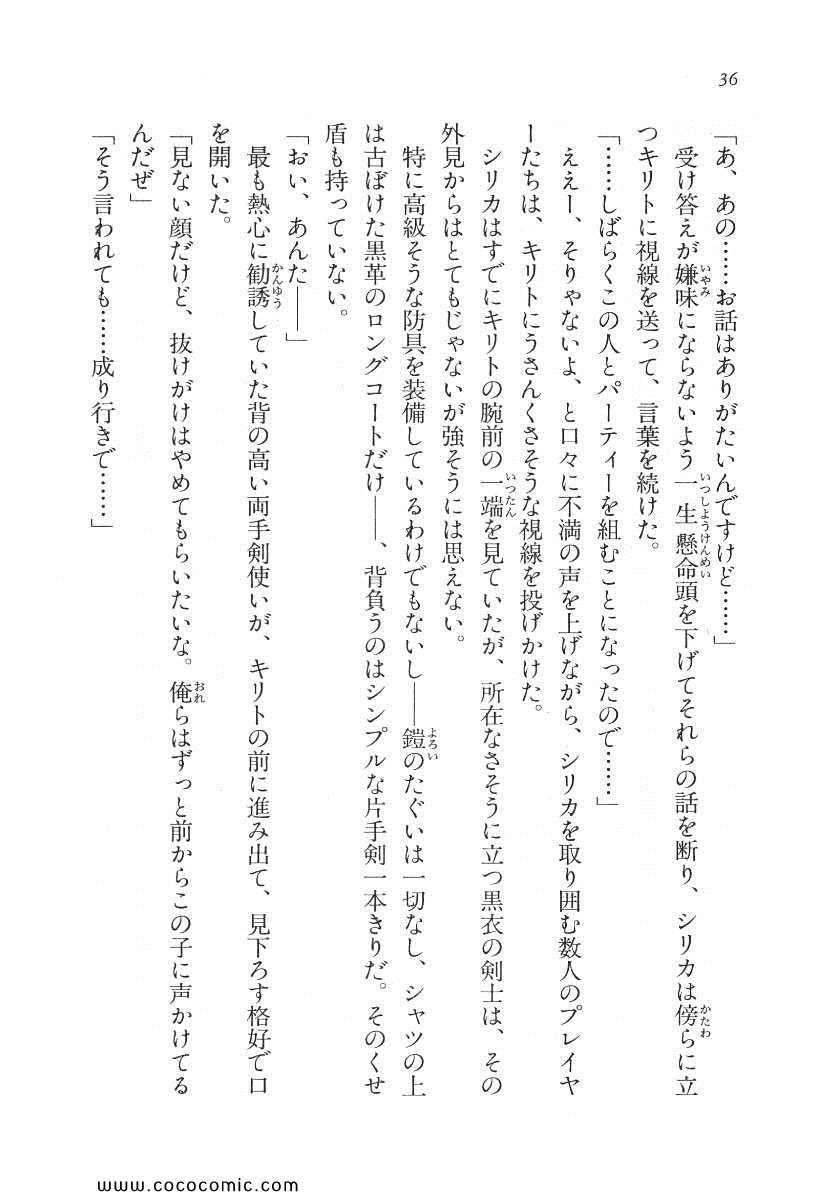 36
「あ、あの……お話はありがたいんですけど……」
　受け答えが嫌味にならないよう一生懸命頭を下げてそれらの話を断り、シリカは傍らに立
つキリトに視線を送って、言葉を続けた。
「……しばらくこの人とパーティーを組むことになったので……」
　ええー、そりゃないよ、と口々に不満の声を上げながら、シリカを取り囲む数人のプレイヤ
ーたちは、キリトにうさんくさそうな視線を投げかけた。
　シリカはすでにキリトの腕前の一端を見ていたが、所在なさそうに立つ黒衣の剣士は、その
外見からはとてもじゃないが強そうには思えない。
　特に高級そうな防具を装備しているわけでもないし——鎧のたぐいは一切なし、シャツの上
は古ぼけた黒革のロングコートだけ——、背負うのはシンプルな片手剣一本きりだ。そのくせ
盾も持っていない。
「おい、あんた——」
　最も熱心に勧誘していた背の高い両手剣使いが、キリトの前に進み出て、見下ろす格好で口
を開いた。
「見ない顔だけど、抜けがけはやめてもらいたいな。俺らはずっと前からこの子に声かけてる
んだぜ」
「そう言われても……成り行きで……」
www.cococomic.com/